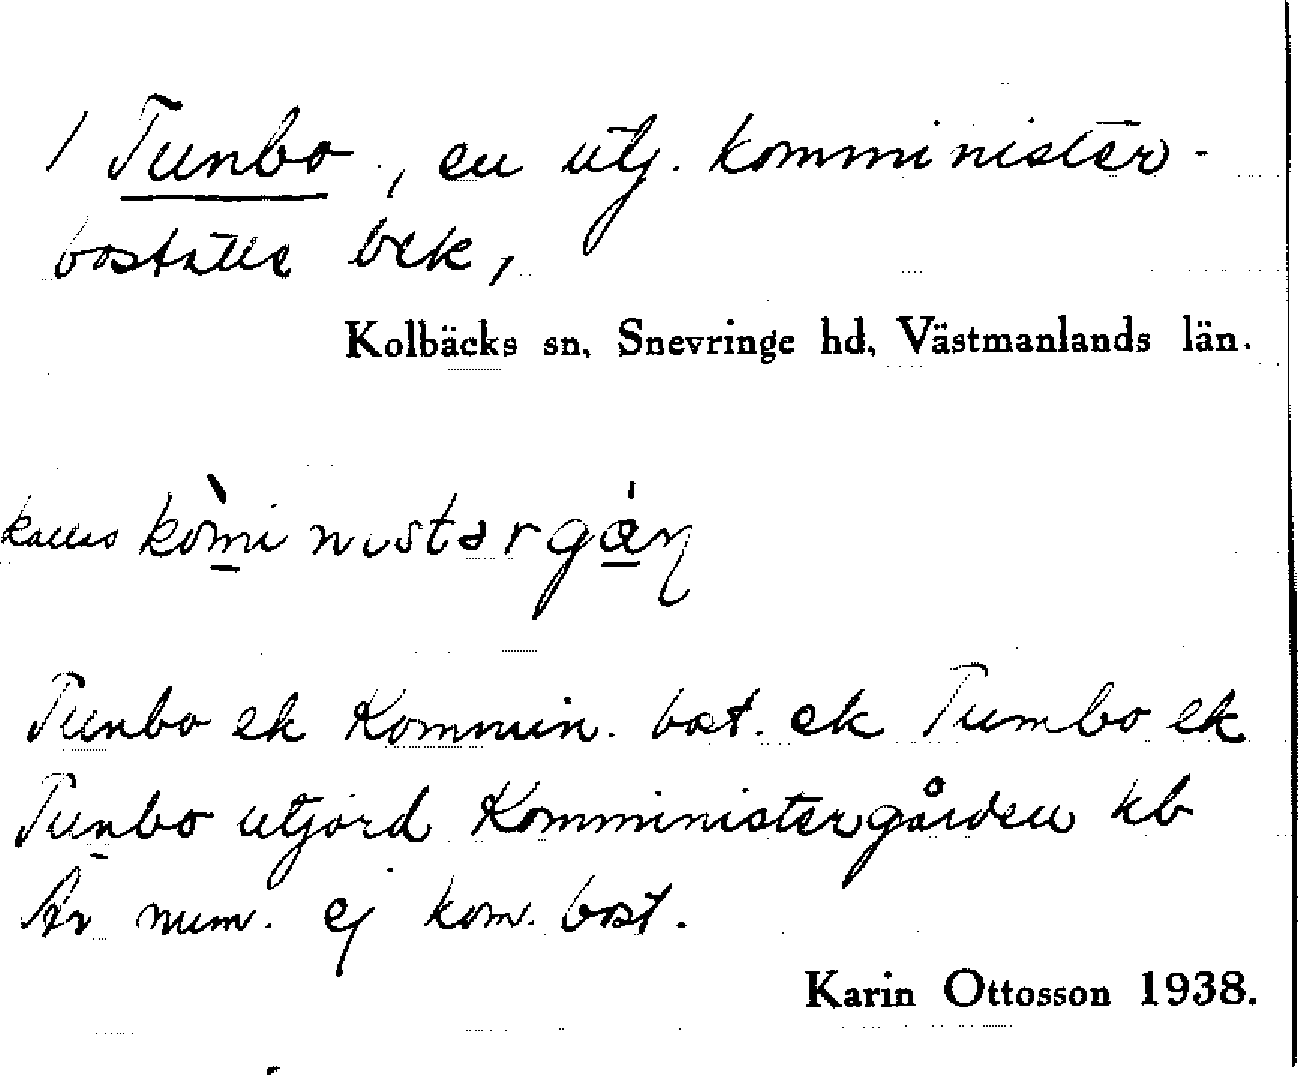 1 Tunbo, en utj. komminister-
boställe bek,
Kolbäcks sn, Snevringe hd, Västmanlands län.
kallas kòministərgán
Tunbo ek Kommin. bost. ek Tumbo ek
Tunbo utjord Komministergården kb
Är num. ej kom. bost.
Karin Ottosson 1938.